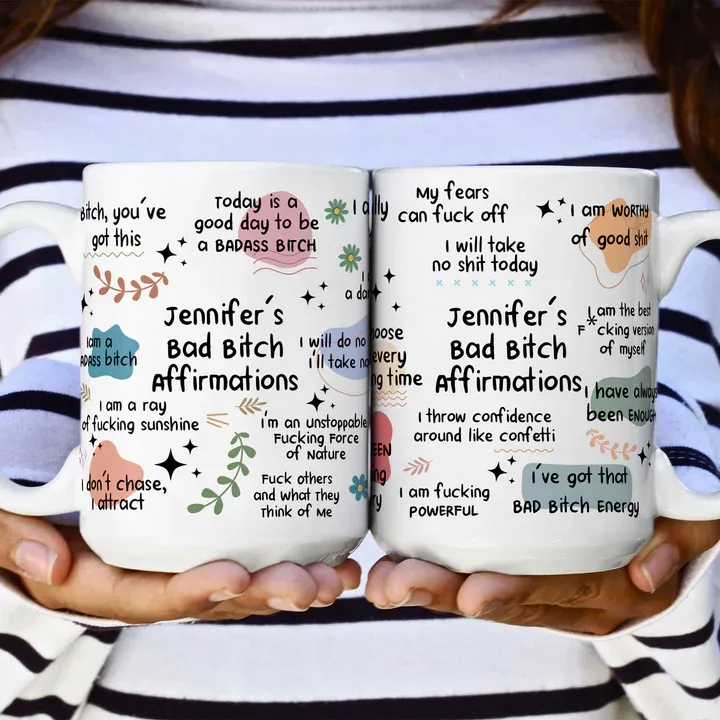 Bitch, you've
got this
Today is a
good day to be
a BADASS BITCH
I a
I
a da
Jennifer's
Bad Bitch
Affirmations
I am a
BADASS bitch
I will do no
I'll take no
I am a ray
of fucking sunshine
I'm an unstoppable
Fucking Force
of Nature
I don't chase,
I attract
Fuck others
and what they
Think of Me
lly
My fears
can fuck off
I am WORTHY
of good shit
I will take
no shit today
oose
every
ng time
Jennifer's
Bad Bitch
Affirmations
I am the best
F*cking version
of myself
I have always
been ENOUGH
I throw confidence
around like confetti
EEN
ng
ry
I am fucking
POWERFUL
I've got that
BAD Bitch Energy